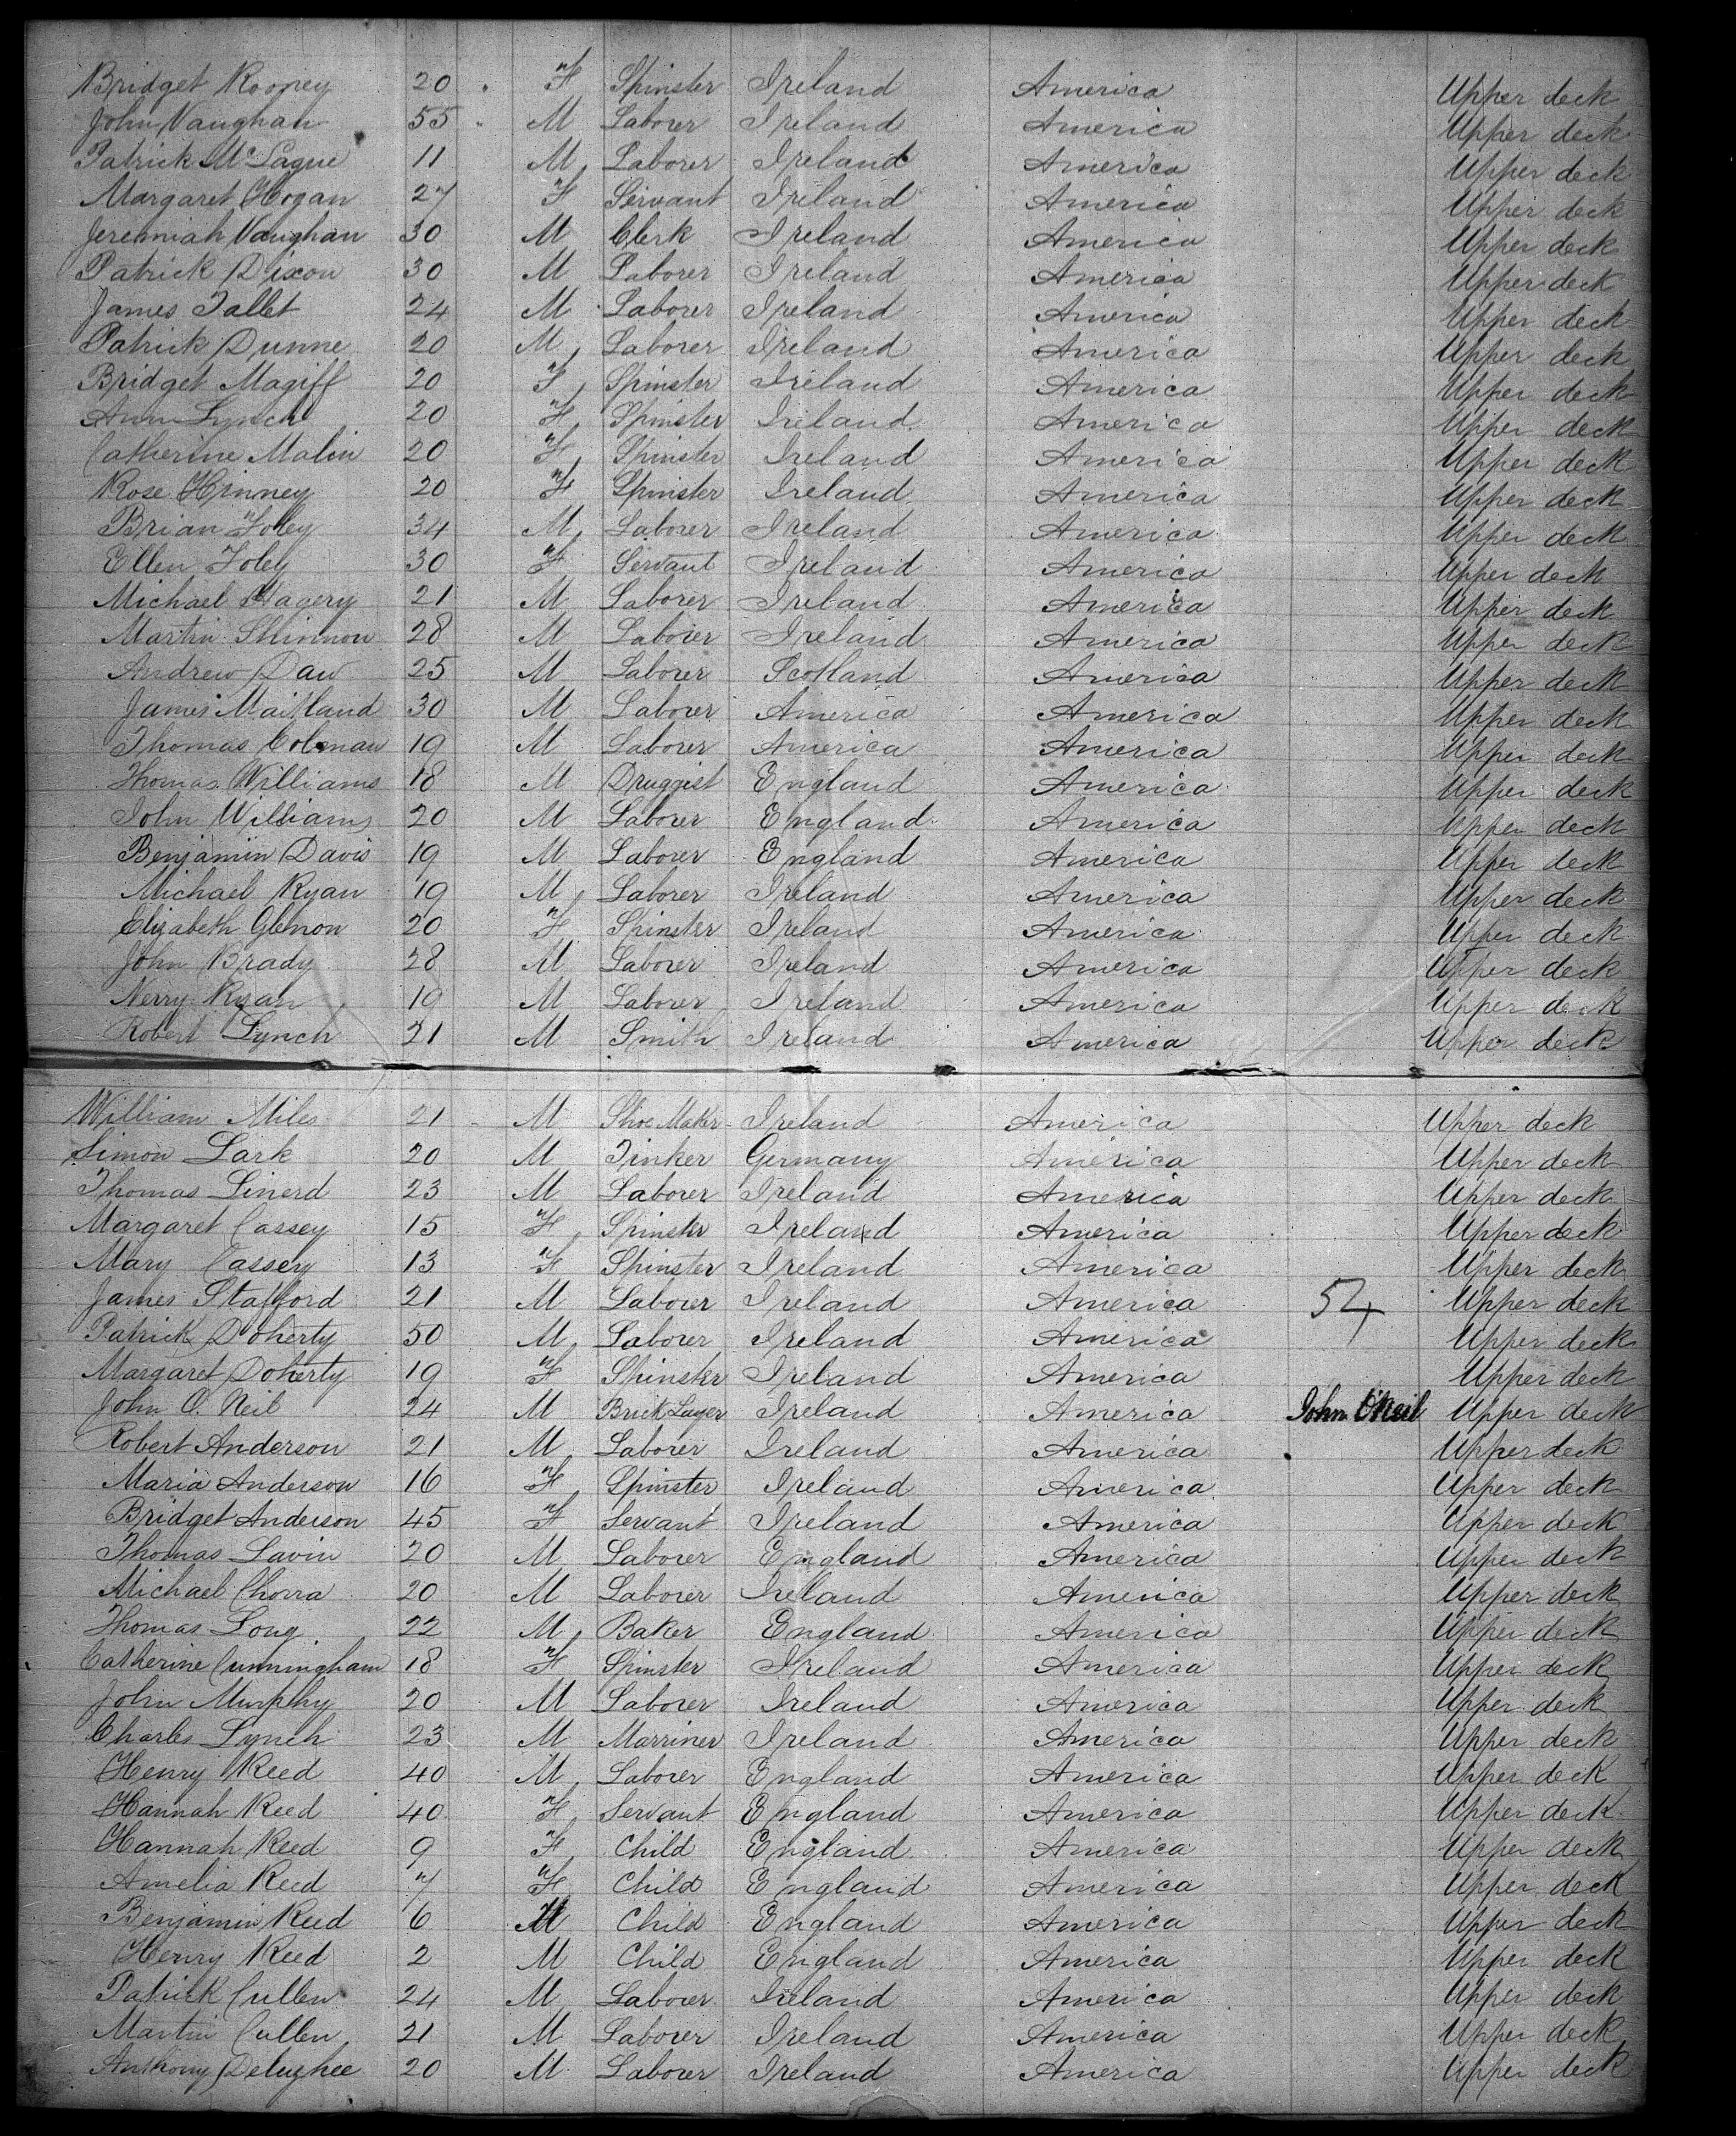 Bridget Rooney 20 F Spinster Ireland America Upper deck
John Vaughan 55 M Laborer Ireland America Upper deck
Patrick McLague 11 M Laborer Ireland America Upper deck
Margaret Hogan 27 F Servant Ireland America Upper deck
Jeremiah Vaughan 30 M Clerk Ireland America Upper deck
Patrick Dixon 30 M Laborer Ireland America Upper deck
James Tallet 24 M Laborer Ireland America Upper deck
Patrick Dunne 20 M Laborer Ireland America Upper deck
Bridget Magiff 20 F Spinster Ireland America Upper deck
Ann Lynch 20 F Spinster Ireland America Upper deck
Catherine Malin 20 F Spinster Ireland America Upper deck
Rose Hinney 20 F Spinster Ireland America Upper deck
Brian Foley 34 M Laborer Ireland America Upper deck
Ellen Foley 30 F Servant Ireland America Upper deck
Michael Hagery 21 M Laborer Ireland America Upper deck
Martin Shinnon 28 M Laborer Ireland America Upper deck
Andrew Daw 25 M Laborer Scotland America Upper deck
James Maitland 30 M Laborer America America Upper deck
Thomas Colman 19 M Laborer America America Upper deck
Thomas Williams 18 M Druggist England America Upper deck
John Williams 20 M Laborer England America Upper deck
Benjamin Davis 19 M Laborer England America Upper deck
Michael Ryan 19 M Laborer Ireland America Upper deck
Elizabeth Glennon 20 F Spinster Ireland America Upper deck
John Brady 28 M Laborer Ireland America Upper deck
Nerry Ryan 19 M Laborer Ireland America Upper deck
Robert Lynch 21 M Smith Ireland America Upper deck
William Miles 21 M Shoe Maker Ireland America Upper deck
Simon Lark 20 M Tinker Germany America Upper deck
Thomas Linerd 23 M Laborer Ireland America Upper deck
Margaret Cassey 15 F Spinster Ireland America Upper deck
Mary Cassey 13 F Spinster Ireland America Upper deck
James Stafford 21 M Laborer Ireland America 54 Upper deck
Patrick Doherty 50 M Laborer Ireland America Upper deck
Margaret Doherty 19 F Spinster Ireland America Upper deck
John O. Neil 24 M Brick Layer Ireland America John O'Neil Upper deck
Robert Anderson 21 M Laborer Ireland America Upper deck
Maria Anderson 16 F Spinster Ireland America Upper deck
Bridget Anderson 45 F Servant Ireland America Upper deck
Thomas Lavin 20 M Laborer England America Upper deck
Michael Chorra 20 M Laborer Ireland America Upper deck
Thomas Long 22 M Baker England America Upper deck
Catherine Cunningham 18 F Spinster Ireland America Upper deck
John Murphy 20 M Laborer Ireland America Upper deck
Charles Lynch 23 M Marriner Ireland America Upper deck
Henry Reed 40 M Laborer England America Upper deck
Hannah Reed 40 F Servant England America Upper deck
Hannah Reed 9 F Child England America Upper deck
Amelia Reed 7 F Child England America Upper deck
Benjamin Reed 6 M Child England America Upper deck
Henry Reed 2 M Child England America Upper deck
Patrick Cullen 24 M Laborer Ireland America Upper deck
Martin Cullen 21 M Laborer Ireland America Upper deck
Anthony Delughee 20 M Laborer Ireland America Upper deck